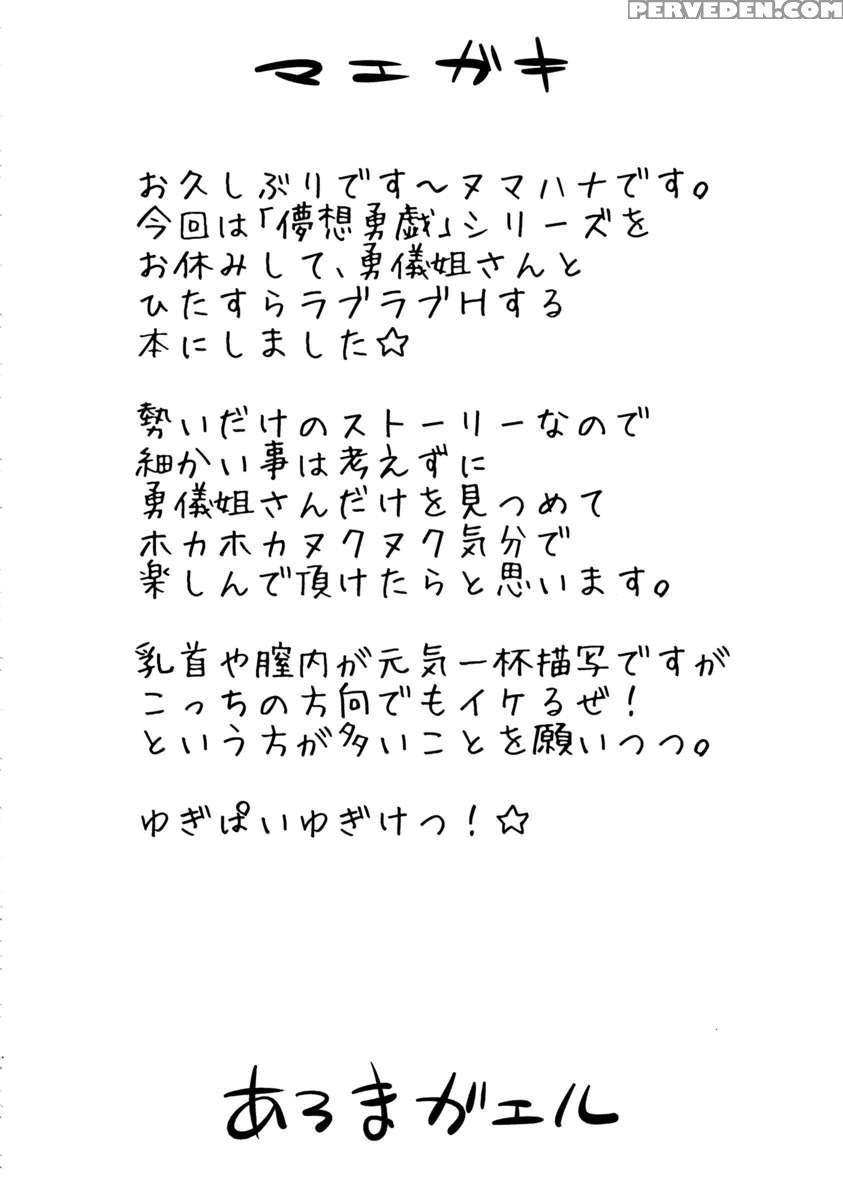 PERVEDEN.COM
マエガキ
お久しぶりです～ヌマハナです。
今回は「儚想勇戯」シリーズを
お休みして、勇儀姐さんと
ひたすらラブラブHする
本にしました☆
勢いだけのストーリーなので
細かい事は考えずに
勇儀姐さんだけを見つめて
ホカホカヌクヌク気分で
楽しんで頂けたらと思います。
乳首や膣内が元気一杯描写ですが
こっちの方向でもイケるぜ！
という方が多いことを願いつつ。
ゆぎぱいゆぎけつ！☆
あろまがエル